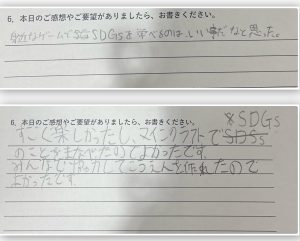 6. 本日のご感想やご要望がありましたら、お書きください。
身近なゲームでSDGsを学べるのは、いい事だなと思った。
6. 本日のご感想やご要望がありましたら、お書きください。
※SDGs
すごく楽しかったし、マインクラフトでSDSs
のことをまなべたのでよかったです。
みんなと協力してこうえんを作れたので
よかったです。